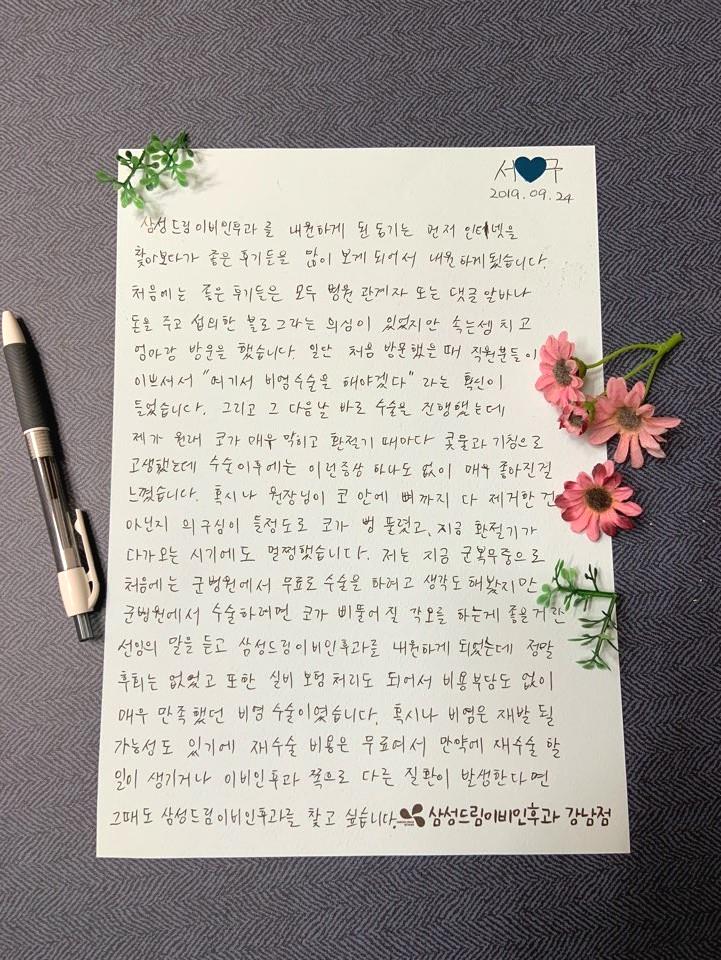 서♥구
2019.09.24
삼성드림이비인후과를 내원하게 된 동기는 먼저 인터넷을
찾아보다가 좋은 후기들을 많이 보게 되어서 내원하게됬습니다.
처음에는 좋은 후기들은 모두 병원 관계자 또는 댓글알바나
돈을 주고 섭외한 블로그라는 의심이 있었지만 속는셈 치고
엄마랑 방문을 했습니다. 일단 처음 방문했은 때 직원분들이
이쁘셔서 "여기서 비염수술을 해야겠다" 라는 확신이
들었습니다. 그리고 그 다음날 바로 수술을 진행했는데
제가 원래 코가 매우 막히고 환절기 때마다 콧물과 기침으로
고생했는데 수술이후에는 이런증상 하나도 없이 매우 좋아진걸
느꼈습니다. 혹시나 원장님이 코 안에 뼈까지 다 제거한 건
아닌지 의구심이 들정도로 코가 뻥 뚫렸고, 지금 환절기가
다가오는 시기에도 멀쩡했습니다. 저는 지금 군복무중으로
처음에는 군병원에서 무료로 수술을 하려고 생각도 해봤지만
군병원에서 수술하려면 코가 삐뚤어질 각오를 하는게 좋을거란
선임의 말을 듣고 삼성드림이비인후과를 내원하게 되었는데 정말
후회는 없었고 또한 실비 보험 처리도 되어서 비용부담도 없이
매우 만족했던 비염 수술이였습니다. 혹시나 비염은 재발 될
가능성도 있기에 재수술 비용은 무료여서 만약에 재수술 할
일이 생기거나 이비인후과 쪽으로 다른 질환이 발생한다면
그때도 삼성드림이비인후과를 찾고 싶습니다. 삼성드림이비인후과 강남점